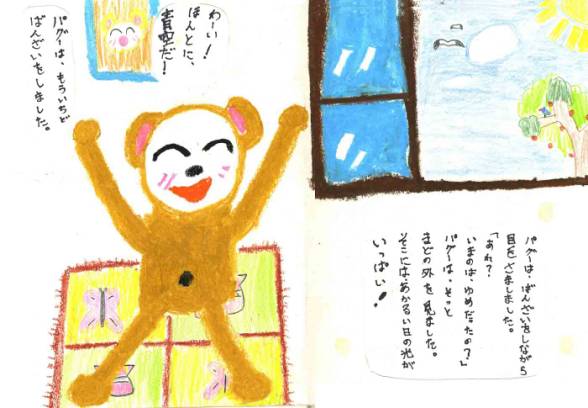 パグーは、ばんざいをしながら
目をさましました。
「あれ？
いまのは、ゆめだったの？」
パグーは、そっと
まどの外を見ました。
そこにはあかるい日の光が
いっぱい！
わーい！
ほんとに、
青空だ！
パグーは、もういちど
ばんざいをしました。